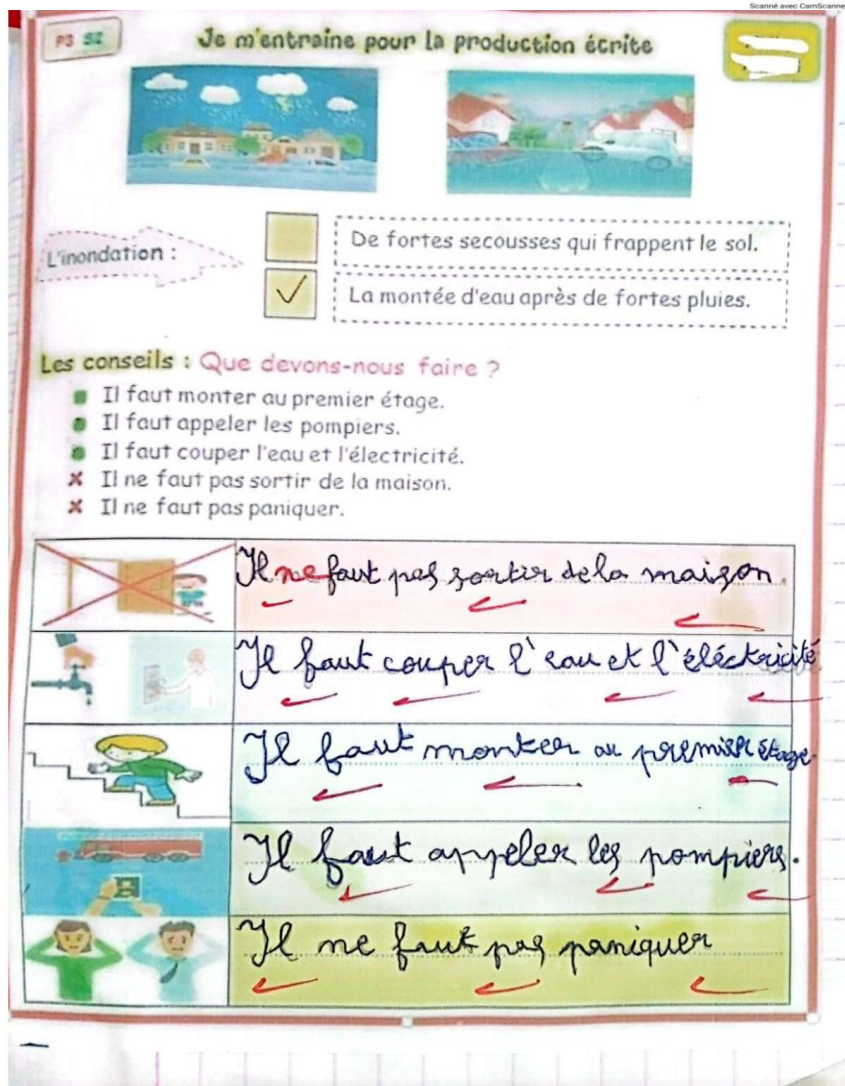 Scanné avec CamScanne
P3 S2
Je m'entraine pour la production écrite
L'inondation :
De fortes secousses qui frappent le sol.
La montée d'eau après de fortes pluies.
Les conseils : Que devons-nous faire ?
Il faut monter au premier étage.
Il faut appeler les pompiers.
Il faut couper l'eau et l'électricité.
Il ne faut pas sortir de la maison.
Il ne faut pas paniquer.
Il ne faut pas sortir de la maison.
Il faut couper l'eau et l'éléctricité
Il faut monter au premier étage.
Il faut appeler les pompiers.
Il ne faut pas paniquer